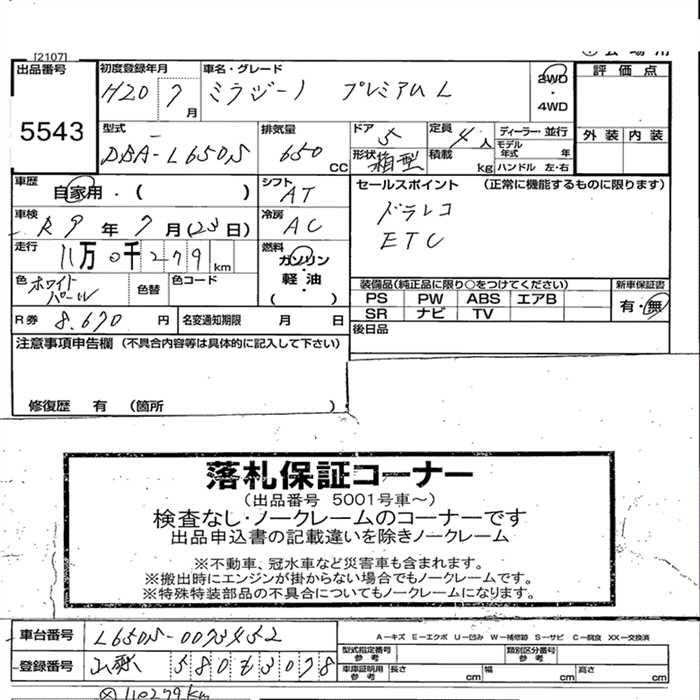 [2107]
出品番号
5543
初度登録年月
H20 7月
車名・グレード
ミラジーノ プレミアムL
2WD
・
4WD
評価点
外装 内装
型式
DBA-L650S
排気量
650 CC
ドア
5
定員
4人
形状
箱型
積載
kg
ディーラー・並行
モデル年式 年
ハンドル 左・右
車歴
自家用・( )
シフト
AT
セールスポイント (正常に機能するものに限ります)
ドラレコ
ETC
車検
R9年7月(23日)
冷房
AC
走行
11万0千279km
燃料
ガソリン
・
軽油
( )
色
ホワイトパール
色替
色コード
装備品(純正品に限り○をつけてください)
PS PW ABS エアB
SR ナビ TV
新車保証書
有・無
R券 8,670円
名変通知期限 月 日
後日品
注意事項申告欄 (不具合内容等は具体的に記入して下さい)
修復歴 有 (箇所 )
落札保証コーナー
(出品番号 5001号車~)
検査なし・ノークレームのコーナーです
出品申込書の記載違いを除きノークレーム
※不動車、冠水車など災害車も含まれます。
※搬出時にエンジンが掛からない場合でもノークレームです。
※特殊特装部品の不具合についてもノークレームになります。
車台番号
L650S-0073452
A-キズ E-エクボ U-凹み W-補修跡 S-サビ C-腐食 XX-交換済
登録番号
580 3078
型式指定番号
参考
類別区分番号
参考
車庫証明用
参考
長さ cm 幅 cm 高さ cm
110279km